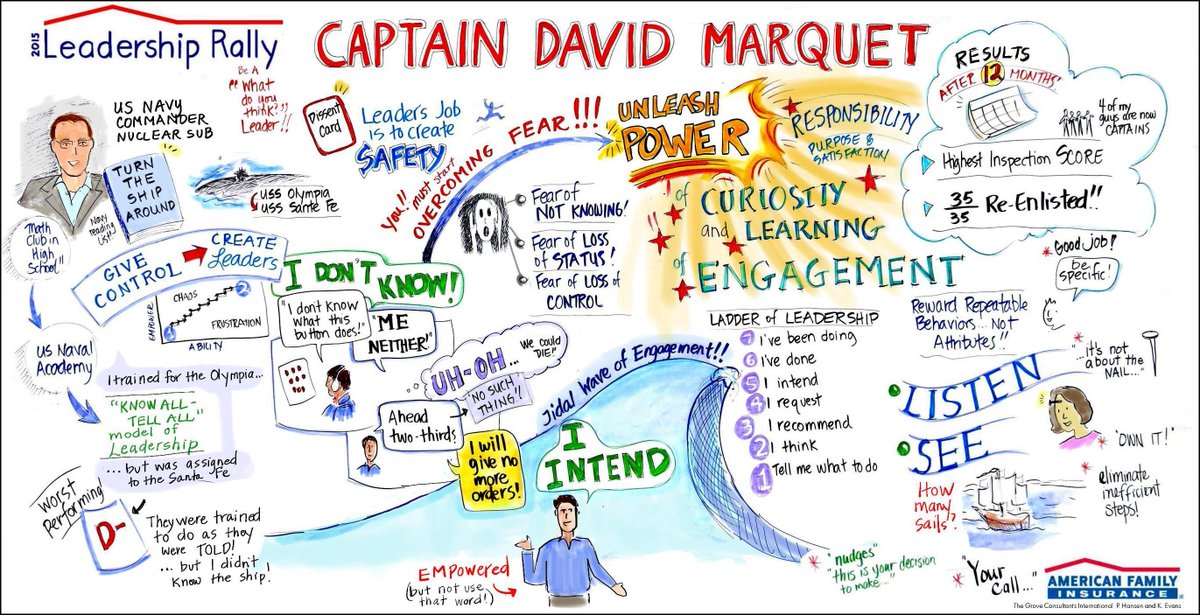 2015
Leadership Rally
CAPTAIN DAVID MARQUET
US NAVY
COMMANDER
NUCLEAR SUB
TURN
THE
SHIP
AROUND
Navy
reading
List!!
Be A
"What
do you
think?"
Leader!!
USS Olympia
USS Santa Fe
Dissent
Card
Leaders Job
is to create
SAFETY
You!! must start
OVERCOMING
FEAR!!!
Fear of
NOT KNOWING!
Fear of LOSS
of STATUS!
Fear of LOSS of
CONTROL
UNLEASH
POWER
RESPONSIBILITY
PURPOSE &
SATISFACTION!
of CURIOSITY
and LEARNING
!!
of ENGAGEMENT
RESULTS
AFTER 12 MONTHS'
4 of my
guys are now
CAPTAINS
Highest Inspection SCORE
35/35 Re-Enlisted!!
"Math
Club in
High
School"
US Naval
Academy
GIVE
CONTROL
CREATE
Leaders
CHAOS
FRUSTRATION
EMPOWER
ABILITY
1
2
I trained for the Olympia...
"KNOW ALL-
TELL ALL"
model of
Leadership
...but was assigned
to the Santa Fe
Worst
Performing!
D-
They were trained
to do as they
were TOLD!
...but I didn't
Know the ship!
I DON'T
KNOW!
"I dont know
what this
button does!"
"ME
NEITHER!"
UH-OH... we could
DIE!!"
"NO SUCH
THING"!
Ahead
two-thirds
I will
give no
more
orders!
Tidal Wave of Engagement!!
I
INTEND
EMPOWERED
(but not use
that word!)
LADDER of LEADERSHIP
7 I've been doing
6 I've done
5 I intend
4 I request
3 I recommend
2 I think
1 Tell me what to do
Good job!
be
specific!
Reward Repeatable
Behaviors... Not
Attributes!!
LISTEN
...it's not
about the
NAIL...
SEE
'OWN IT!'
How
many
sails?
eliminate
inefficient
steps!
"nudges"
"this is your decision
to make..."
"Your
call..."
AMERICAN FAMILY
INSURANCE
The Grove Consultants International P. Hansen and K. Evans